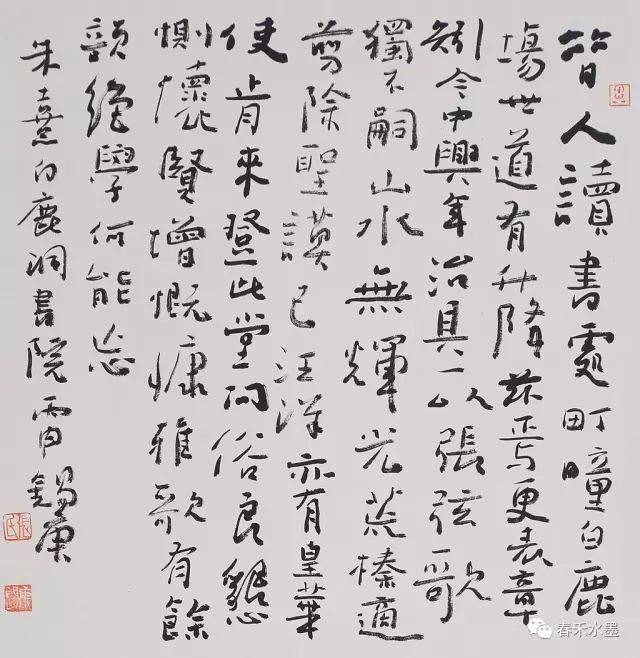 昔人讀書處町疃白鹿
場世道有升降茲焉更表章
矧今中興年治具一以張弦歌
獨不嗣山水無輝光荒榛適
剪除聖謨已汪洋亦有皇華
使肯來登此堂問俗良懇
惻懷賢增慨慷雅歌有餘
韻絕學何能忘
朱熹白鹿洞書院 霄錫庚
春禾水墨